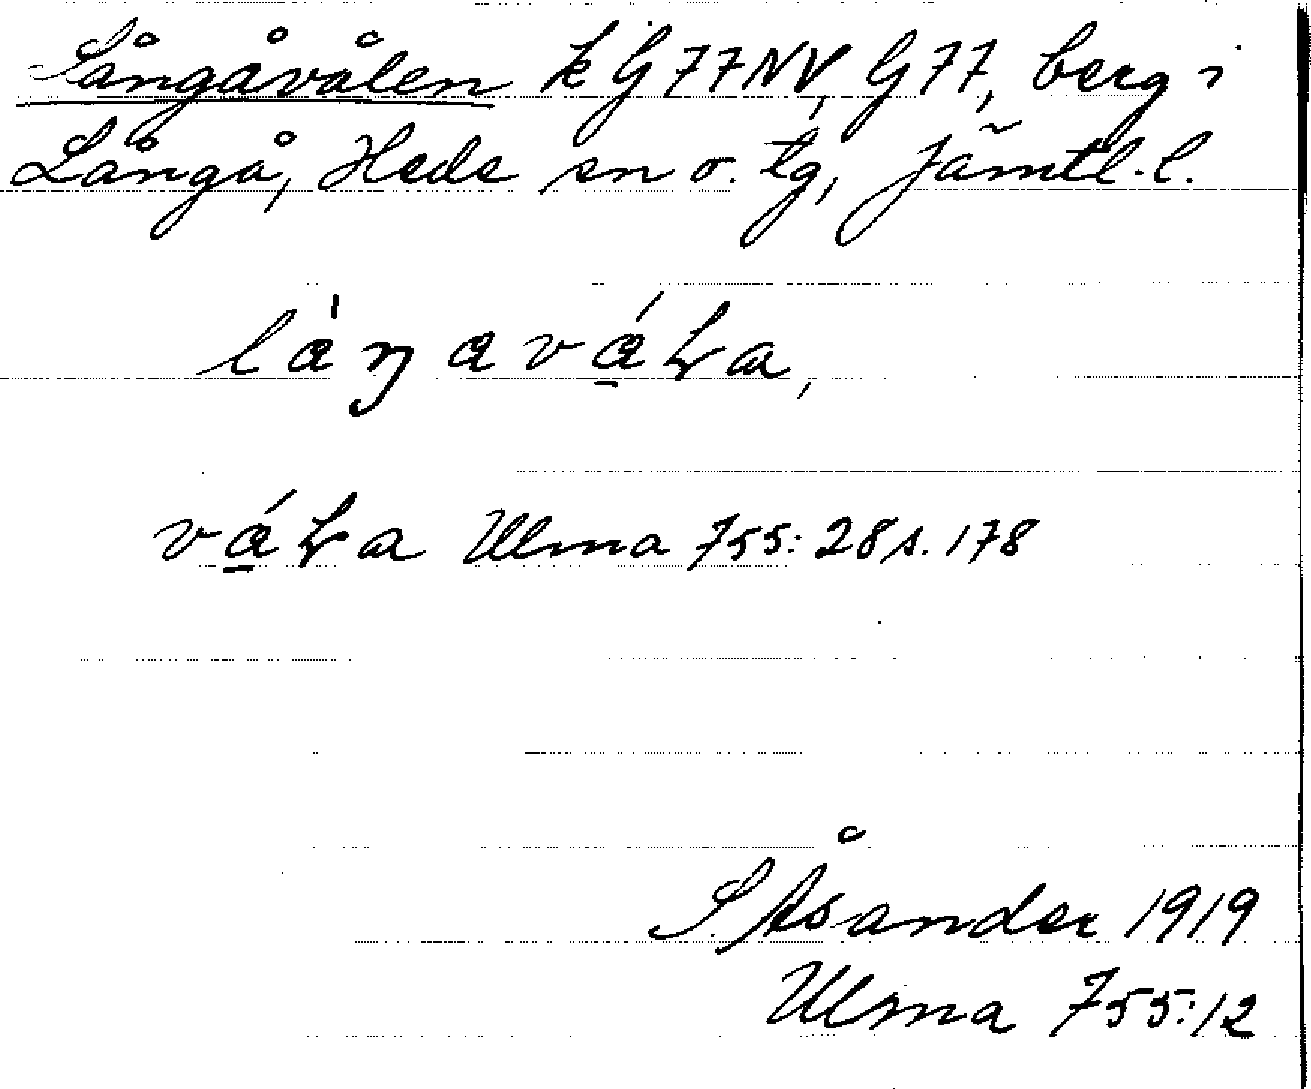 Långåvålen k G 77 NV, G 77, berg i
Långå, Hede sn o. tg, Jämtl. l.
láŋavá̱ƚa,
vá̱ƚa Ulma 755:28 s. 178
S. Åsander 1919
Ulma 755:12